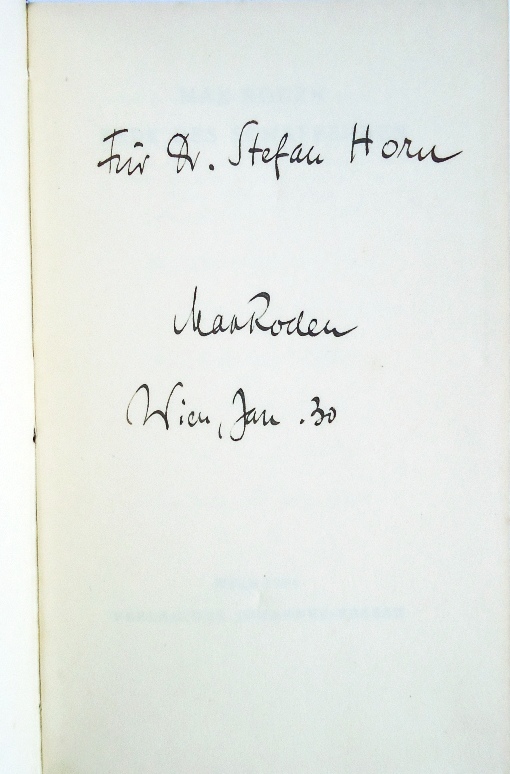 Für Dr. Stefan Horn
Max Roden
Wien, Jan. 30